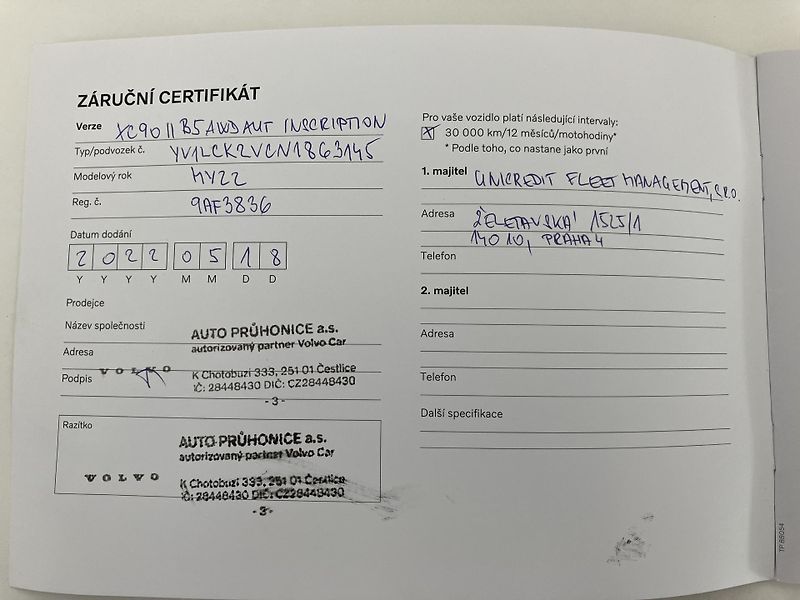 ZÁRUČNÍ CERTIFIKÁT
Verze XC90 II B5 AWD AUT INSCRIPTION
Typ/podvozek č. YV1LCK2VCN1863145
Modelový rok MY22
Reg. č. 9AF3836
Datum dodání
2 0 2 2 0 5 1 8
Y Y Y Y M M D D
Prodejce
Název společnosti AUTO PRŮHONICE a.s.
autorizovaný partner Volvo Car
Adresa
VOLVO K Chotobuzi 333, 251 01 Čestlice
Podpis IČ: 28448430 DIČ: CZ28448430
- 3 -
Razítko
AUTO PRŮHONICE a.s.
autorizovaný partner Volvo Car
VOLVO K Chotobuzi 333, 251 01 Čestlice
IČ: 28448430 DIČ: CZ28448430
- 3 -
Pro vaše vozidlo platí následující intervaly:
X 30 000 km/12 měsíců/motohodiny*
* Podle toho, co nastane jako první
1. majitel UNICREDIT FLEET MANAGEMENT, S.R.O.
Adresa ŽELETAVSKÁ 1525/1
140 10, PRAHA 4
Telefon
2. majitel
Adresa
Telefon
Další specifikace
TP 88054